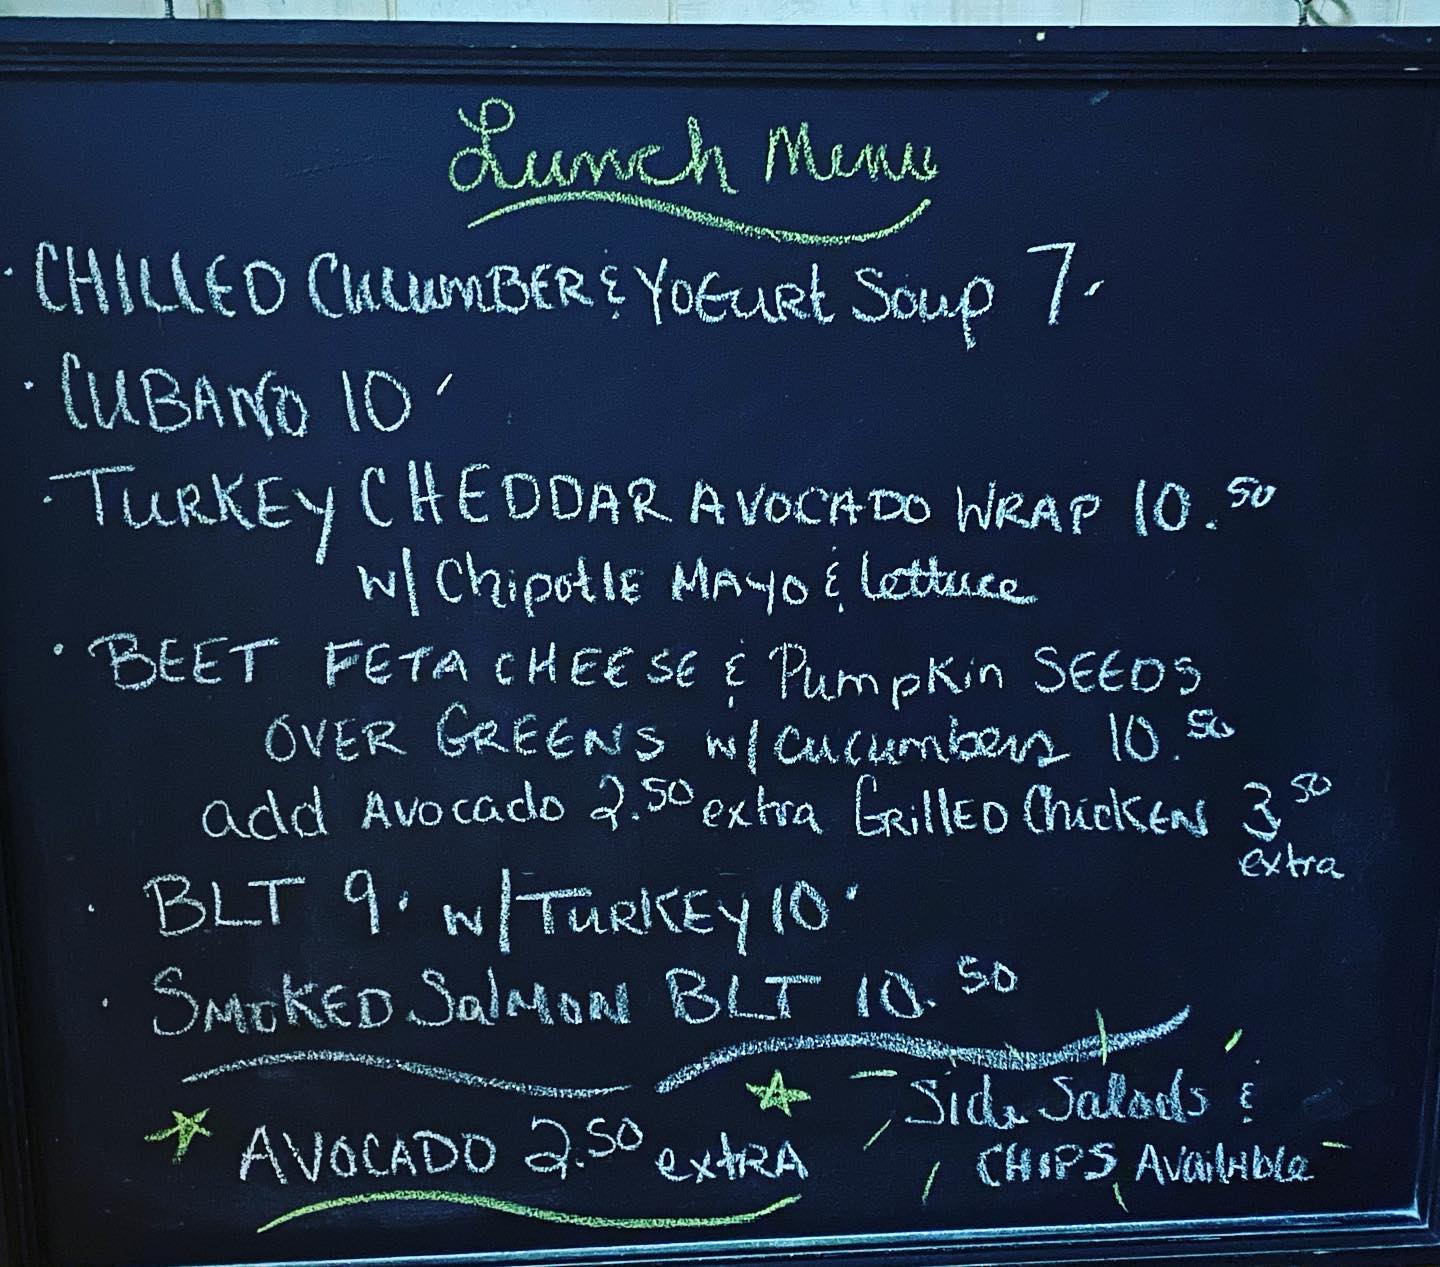 Lunch Menu
· CHILLED CUCUMBER & YOGURt Soup 7.
· CUBANO 10
· TURKEY CHEDDAR AVOCADO WRAP 10.50
w/ ChipotlE MAYO & lettuce
· BEET FETA CHEESE & PumpKin SEEDS
OVER GREENS w/ cucumbers 10.50
add Avocado 2.50 extra GRillED ChicKEN 3.50
extra
· BLT 9. w/ TURKEY 10.
· SMOKED SalMON BLT 10.50
AVOCADO 2.50 extRA
Side Salads &
CHIPS AvailAble